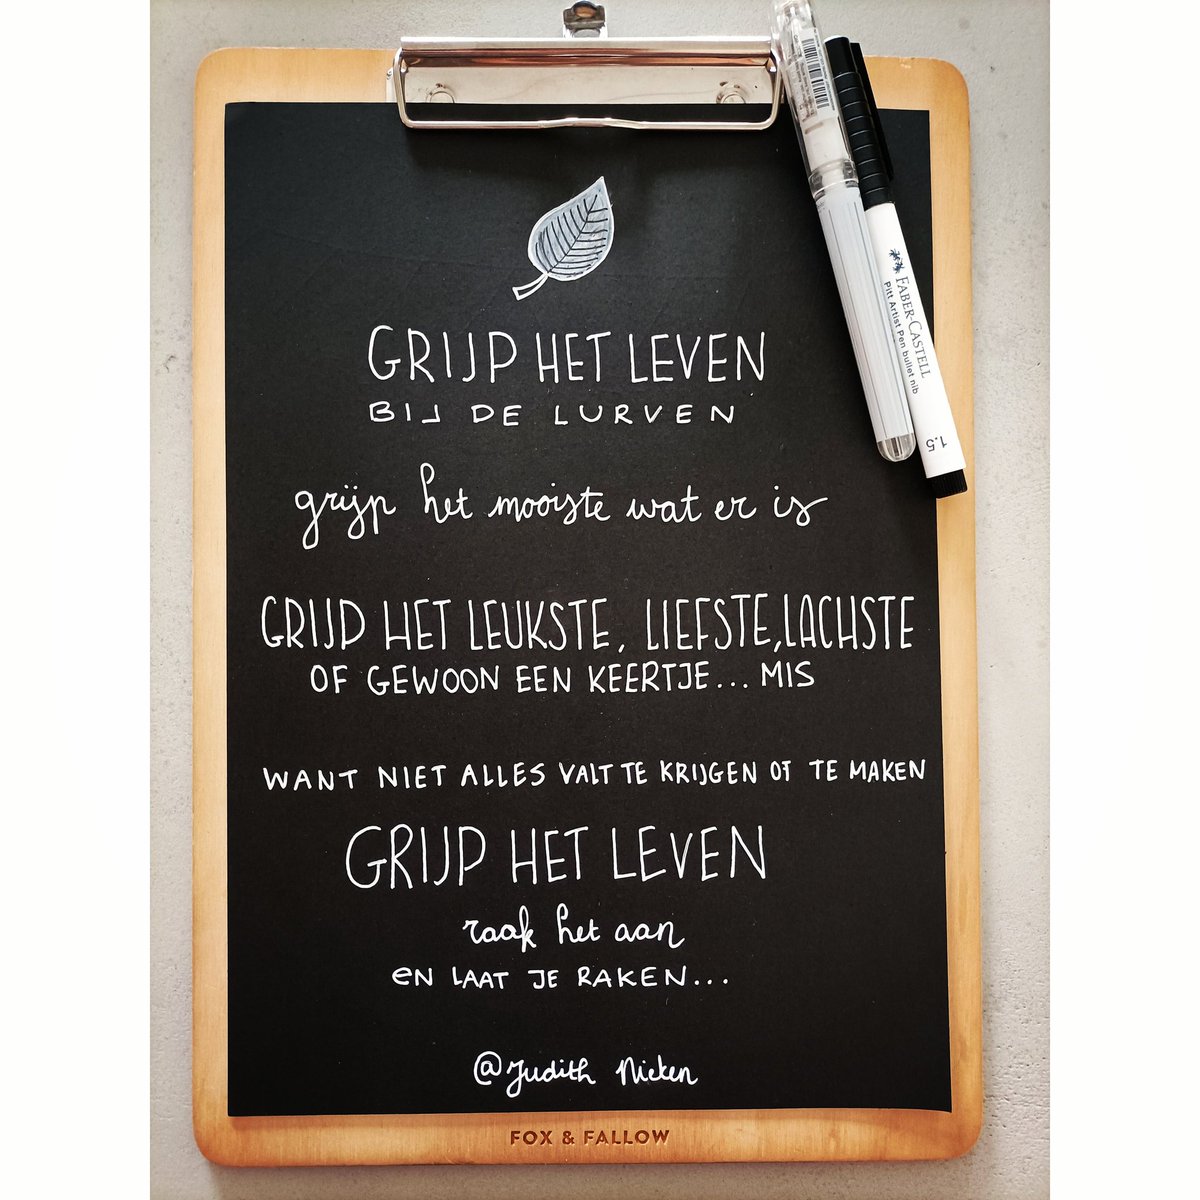 GRIJP HET LEVEN
BIJ DE LURVEN
grijp het mooiste wat er is
GRIJP HET LEUKSTE, LIEFSTE, LACHSTE
OF GEWOON EEN KEERTJE... MIS
WANT NIET ALLES VALT TE KRIJGEN OF TE MAKEN
GRIJP HET LEVEN
raak het aan
EN LAAT JE RAKEN...
@Judith Nieken
FOX & FALLOW
FABER-CASTELL
Pitt Artist Pen bullet nib
1.5